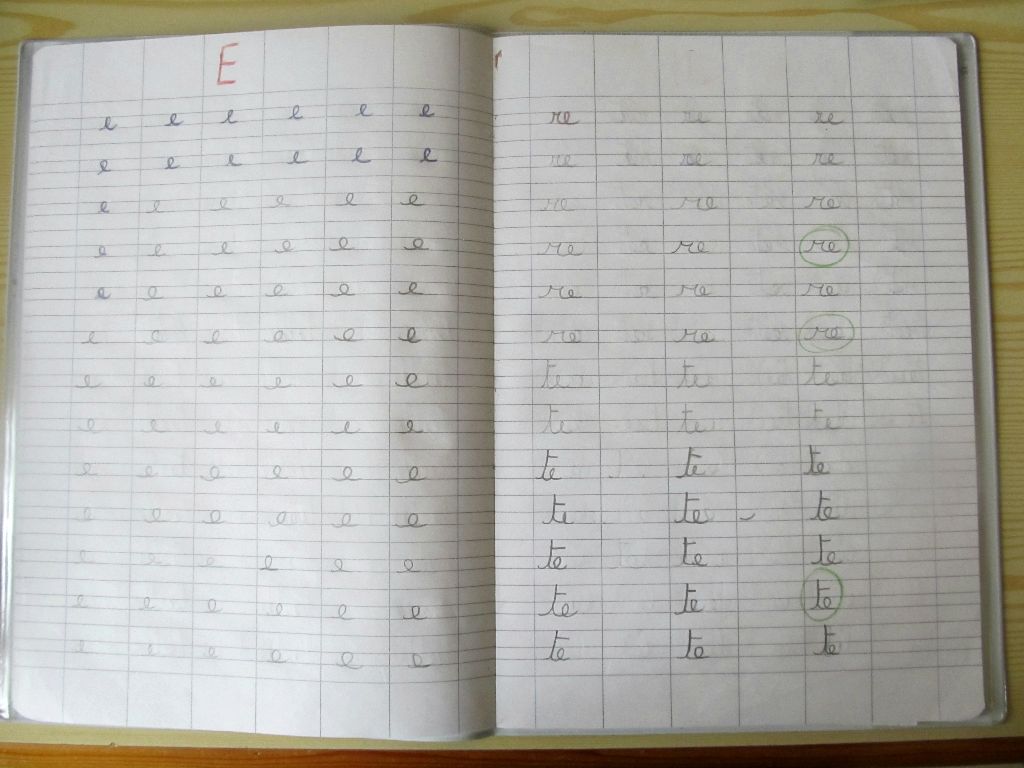 E
e e e e e e
e e e e e e
e e e e e e
e e e e e e
e e e e e e
e e e e e e
e e e e e e
e e e e e e
e e e e e e
e e e e e e
e e e e e e
e e e e e e
e e e e e e
re re re
re re re
re re re
re re re
re re re
re re re
te te te
te te te
te te te
te te te
te te te
te te te
te te te